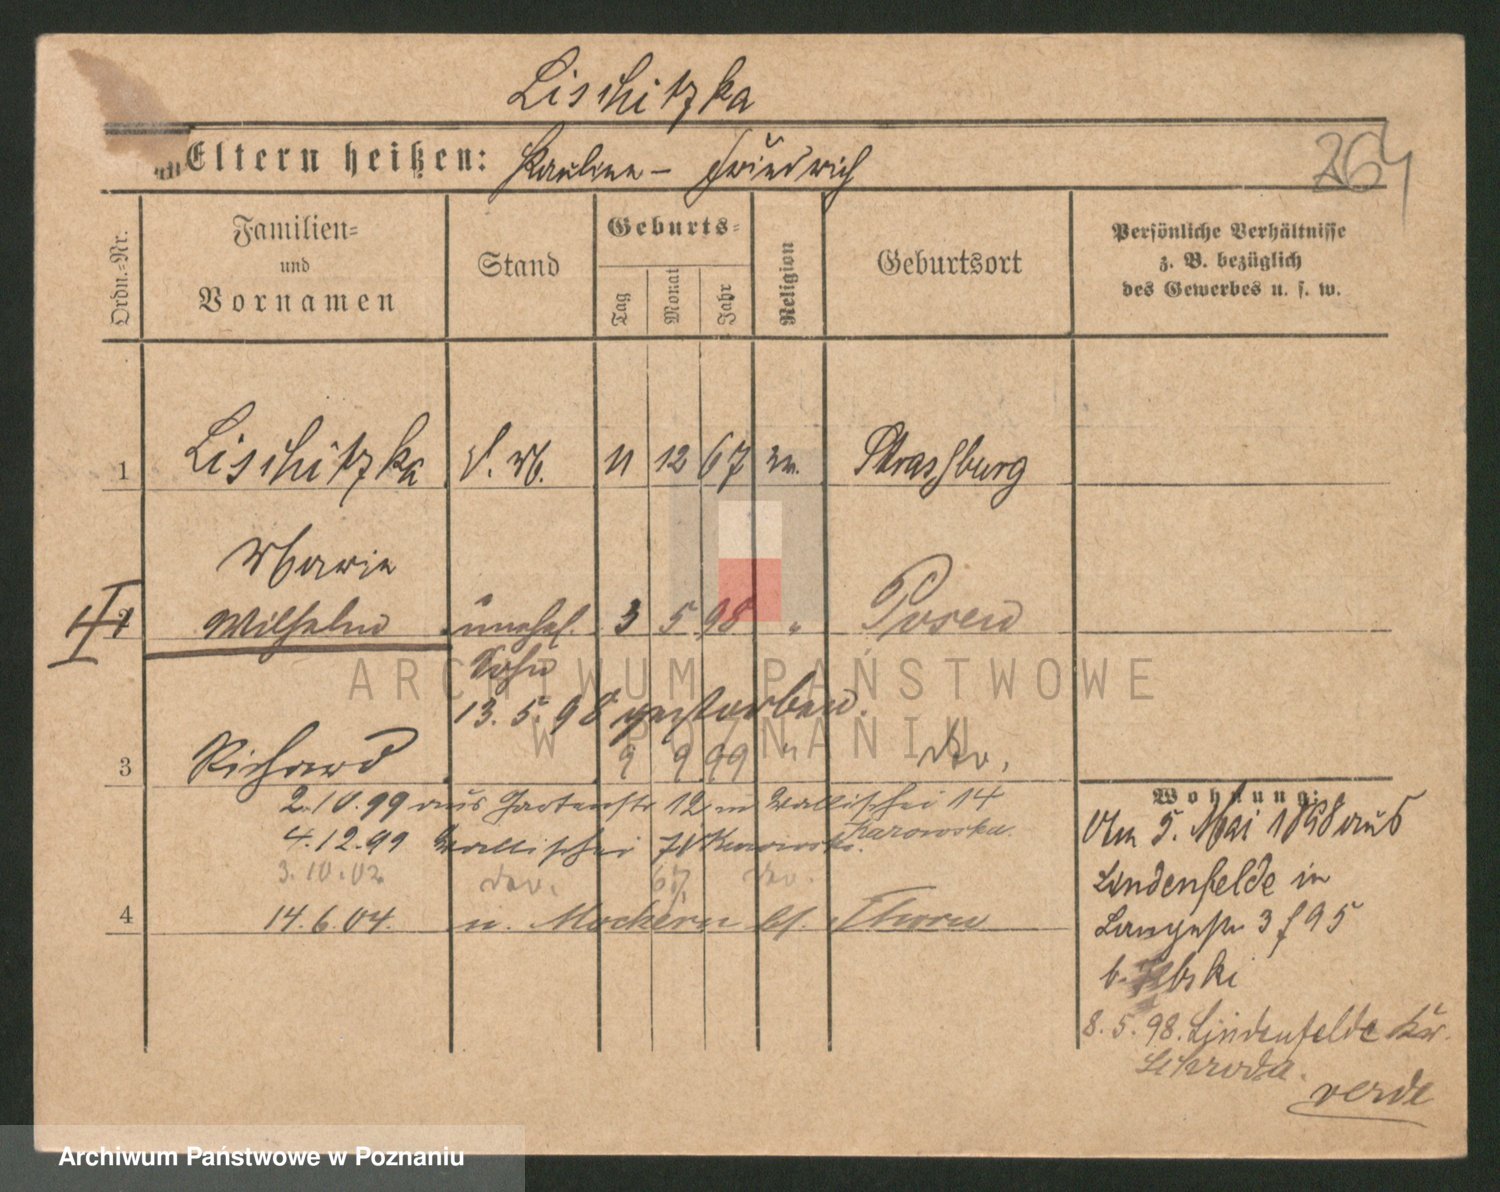 Lischitzka
Eltern heißen: Pauline - Friedrich
264
Ordn.-Nr.
Familien-
und
Vornamen
Stand
Geburts-
Tag
Monat
Jahr
Religion
Geburtsort
Persönliche Verhältnisse
z. B. bezüglich
des Gewerbes u. s. w.
1 Lischitzka 11 12 67 Strassburg
Marie
2 Wilhelm unehel. 3 5 98 " Posen
Sohn
13. 5. 98 gestorben.
3 Richard 9 9 99 " do.
2.10.99 aus Gartenstr 12 n Wallischei 14
Karowska.
4.12.99 Wallischei
3.10.02 do. 67 do.
4 14.6.04. n. Mockern bf. Thorn
Wohnung:
Am 5. Mai 1898 aus
Lindenfelde in
Langestr 3 95
b.
8. 5. 98. Lindenfelde Kr.
Schroda.
verde
ARCHIWUM PAŃSTWOWE
W POZNANIU
Archiwum Państwowe w Poznaniu